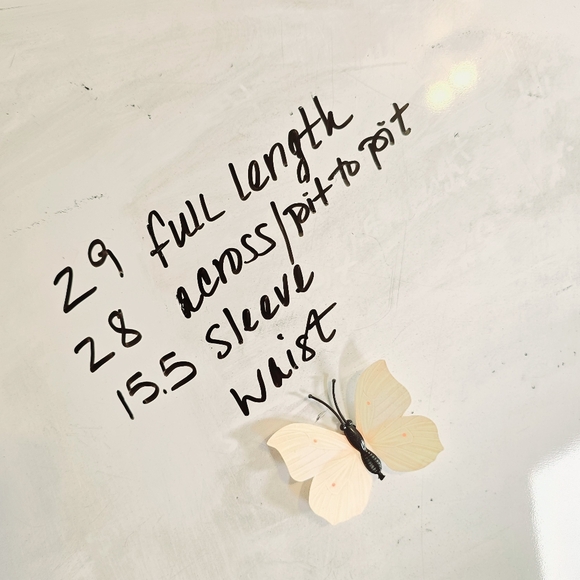 29 full length
28 across/pit to pit
15.5 Sleeve
waist